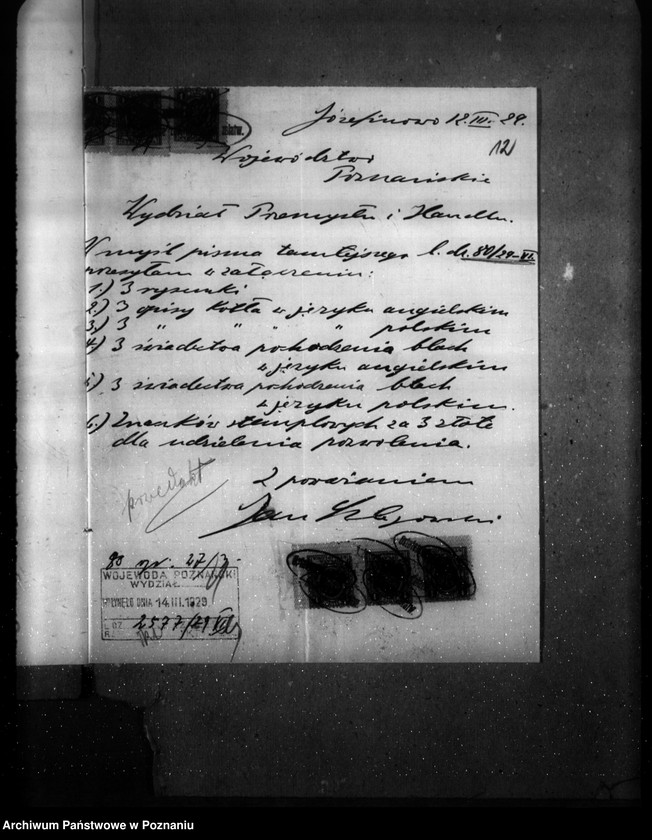 Józefinowo 12. III. 29.
12
Województwo
Poznańskie
Wydział Przemysłu i Handlu.
W myśl pisma tamtejszego l. dz. 80/29-VI.
przesyłam w załączeniu:
1.) 3 rysunki
2.) 3 opisy kotła w języku angielskim
3.) 3 " " " " polskim
4.) 3 świadectwa pochodzenia blach
w języku angielskim
5.) 3 świadectwa pochodzenia blach
w języku polskim.
6.) Znaczków stemplowych za 3 złote
dla udzielenia pozwolenia.
Z poważaniem
Jan
80 27/3
WOJEWODA POZNAŃSKI
WYDZIAŁ
WPŁYNĘŁO DNIA 14.III.1929
L. DZ. 2577/29 VII
Archiwum Państwowe w Poznaniu